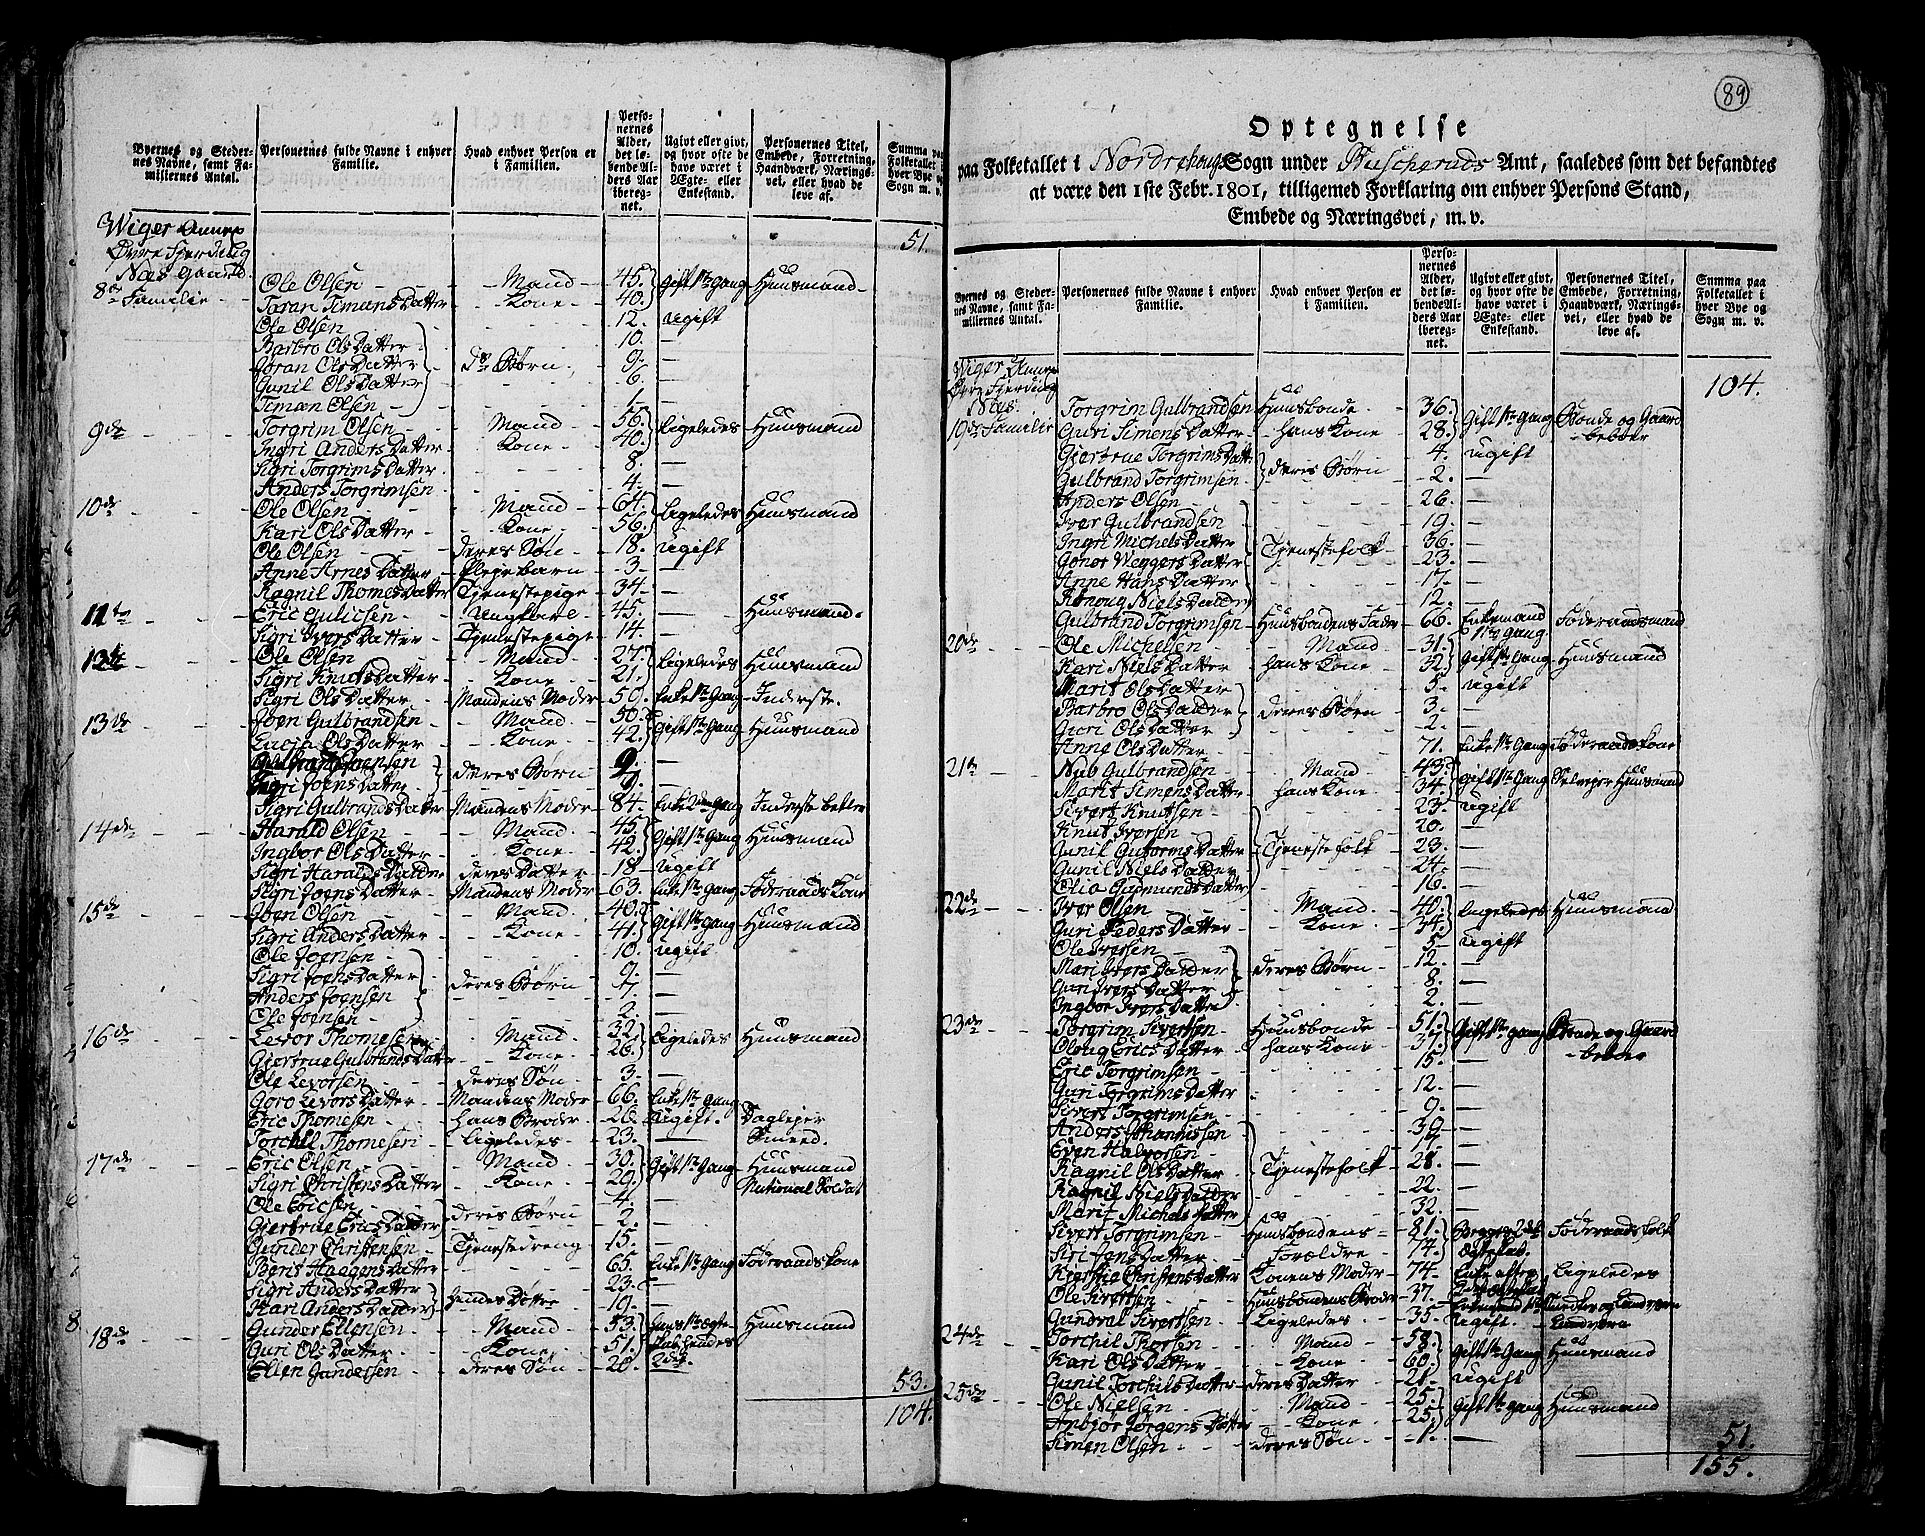 Byernes og Stedernes Navne, samt Familiernes Antal.
Personernes fulde Navne i enhver Familie.
Hvad enhver Person er i Familien.
Personernes Alder, det løbende Alders Aar iberegnet.
Ugivt eller givt, og hvor ofte de have været i Ægte- eller Enkestand.
Personernes Titel, Embede, Forretning, Haandværk, Næringsvei, eller hvad de leve af.
Summa paa Folketallet i hver Bye og Sogn m. v.
Wiger Annex 51.
Øvre Fjerding
Næs Gaard.
8de Familie Ole Olsen Mand 45. Gift 1te Gang Huusmand
Joran Simens Datter Kone 40.
Ole Olsen 12. ugift
Barbro Ols Datter 10. —
Joran Ols Datter drs Børn 9. —
Gunil Ols Datter 6. —
Simæn Olsen 1. —
9de Torgrim Olsen Mand 56. Ligeledes Huusmand
Ingri Anders Datter Kone 40.
Sigri Torgrims Datter 8. —
Anders Torgrimsen 4. —
10de Ole Olsen Mand 64. Ligeledes Huusmand
Kari Ols Datter Kone 56.
Ole Olsen deres Søn 18. ugift
Anne Arnes Datter Plejebarn 3 —
Ragnil Thomes Datter Tjenestepige 34 —
11te Eric Gulicsen Ungkarl 45. — Huusmand.
Sigri Ivers Datter Tjenestepige 14. —
Ole Olsen Mand 27. Ligeledes Huusmand
Sigri Knuts Datter Kone 21.
Sigri Ols Datter Mandens Moder 50. Enke 1te Gang Inderste.
13de Joen Gulbrandsen Mand 50. Gift 1te Gang Huusmand
Ols Datter Kone 42.
Gulbrand Joensen deres Børn 9. —
Ingri Joens Datter —
Sigri Gulbrands Datter Mandens Moder 84. Enke 2den Gang Inderste betler
14de Harald Olsen Mand 45. Gift 1te Gang Huusmand
Ingbor Ols Datter Kone 42.
Sigri Haralds Datter deres Datter 18 ugift
Sigri Joens Datter Mandens Moder 63. Enke 1te Gang Føderaads Kone
15de Joen Olsen Mand 40. Gift 1te Gang Huusmand
Sigri Anders Datter Kone 41.
Ole Joensen 10. ugift
Sigri Joens Datter deres Børn 9. —
Anders Joensen 7. —
Ole Joensen 2. —
16de Levor Thomesen Mand 32. Ligeledes Huusmand
Giertrue Gulbrands Datter Kone 26.
Ole Levorsen deres Søn 3. —
Goro Levors Datter Mandens Moder 66. Enke 1te Gang
Eric Thomesen hans Broder 26. Ugift. Daglejer
Torchil Thomesen Ligeledes 23. — Smeed.
17de Eric Olsen Mand 30. Gift 1te Gang Huusmand
Sigri Christens Datter Kone 29. National Soldat
Ole Ericsen deres Børn 4. —
Giertrue Erics Datter 2. —
Gunder Christensen Tjenestedreng 15. —
Berit Haagens Datter 65. Enke 1te Gang Føderaads kone
Sigri Anders Datter hendes Døttre 23. —
Kari Anders Datter 19. —
18de Gunder Ellensen Mand 53. hans 1te Ægte- Huusmand
Guri Ols Datter Kone 51. skab hendes
Ellen Gundersen deres Søn 20. 2det
53.
104.
89
Optegnelse
paa Folketallet i Nordrehougs Sogn under Buscheruds Amt, saaledes som det befandtes
at være den 1ste Febr. 1801, tilligemed Forklaring om enhver Persons Stand,
Embede og Næringsvei, m. v.
Byernes og Stedernes Navne, samt Familiernes Antal.
Personernes fulde Navne i enhver Familie.
Hvad enhver Person er i Familien.
Personernes Alder, det løbende Alders Aar iberegnet.
Ugivt eller givt, og hvor ofte de have været i Ægte- eller Enkestand.
Personernes Titel, Embede, Forretning, Haandværk, Næringsvei, eller hvad de leve af.
Summa paa Folketallet i hver Bye og Sogn m. v.
Wiger Annex
Øvre Fjerding 104.
Næs.
19de Familie Torgrim Gulbrandsen Huusbonde 36. Gift 1te Gang Bonde og Gaard
Guri Simens Datter hans Kone 28. beboer
Giertrue Torgrims Datt deres Børn 4. ugift
Gulbrand Torgrimsen 2. —
Anders Olsen 26. —
Iver Gulbrandsen 19. —
Ingri Michels Datter Tjenestefolk 36. —
Gonor Weggers Datter 23. —
Anne Hans Datter 17. —
Niels Datter 12. —
Gulbrand Torgrimsen Huusbondens Fader 66. Enkemand 1te Gang Føderaadsmand
20de Ole Michelsen Mand 31. Gift 1te Gang Huusmand
Kari Niels Datter hans Kone 32.
Marit Ols Datter 5. ugift
Barbro Ols Datter deres Børn 3. —
Giori Ols Datter 2. —
Anne Ols Datter 71. Enke 1te Gang Føderaadskone
21te Nub Gulbrandsen Mand 43. Gift 1te Gang Huusmand
Marit Simens Datter hans Kone 34.
Sivert Knutsen 23. ugift
Knut Iversen 20. —
Gunil Gutorms Datter Tjenestefolk 23. —
Gunil Niels Datter 24. —
Olia Gudmunds Datter 16. —
22de Iver Olsen Mand 40. Ligeledes Huusmand
Guri Peders Datter Kone 34.
Ole Iversen 5. ugift
Mari Ivers Datter deres Børn 12. —
Guri Ivers Datter 8. —
Ingbor Ivers Datter 2. —
23de Torgrim Sivertsen Huusbonde 51. Gift 1te gang Bonde og Gaard
Oloug Erics Datter hans Kone 37. beboer
Eric Torgrimsen 15. —
Guri Torgrims Datter 12. —
Sivert Torgrimsen 9. —
Anders Johannissen 39 —
Even Halvorsen —
Ragnil Ols Datter Tjenestefolk 28. —
Ragnil Niels Datter 22. —
Marit Michels Datter 32. —
Sivert Torgrimsen Huusbondens 81. Begge 2det Føderaadsfolk
Siri Jens Datter Forældre 74. Ægteskab.
Kjersti Christens Datter Konens Moder 74. Enke efter Ligeledes
Ole Sivertsen Huusbondens Broder 37.
Gundval Sivertsen Ligeledes 35. Ugift.
24de Torchil Thorsen Mand 58. Gift 1te Gang Huusmand
Kari Ols Datter Kone 60.
Gunil Torchils Datter deres Datter 21. ugift
25de Ole Nielsen Mand 25. Gift 1te Gang Huusmand
Anbjør Jørgens Datter Kone 25.
Simen Olsen deres Søn 1. —
51.
155.